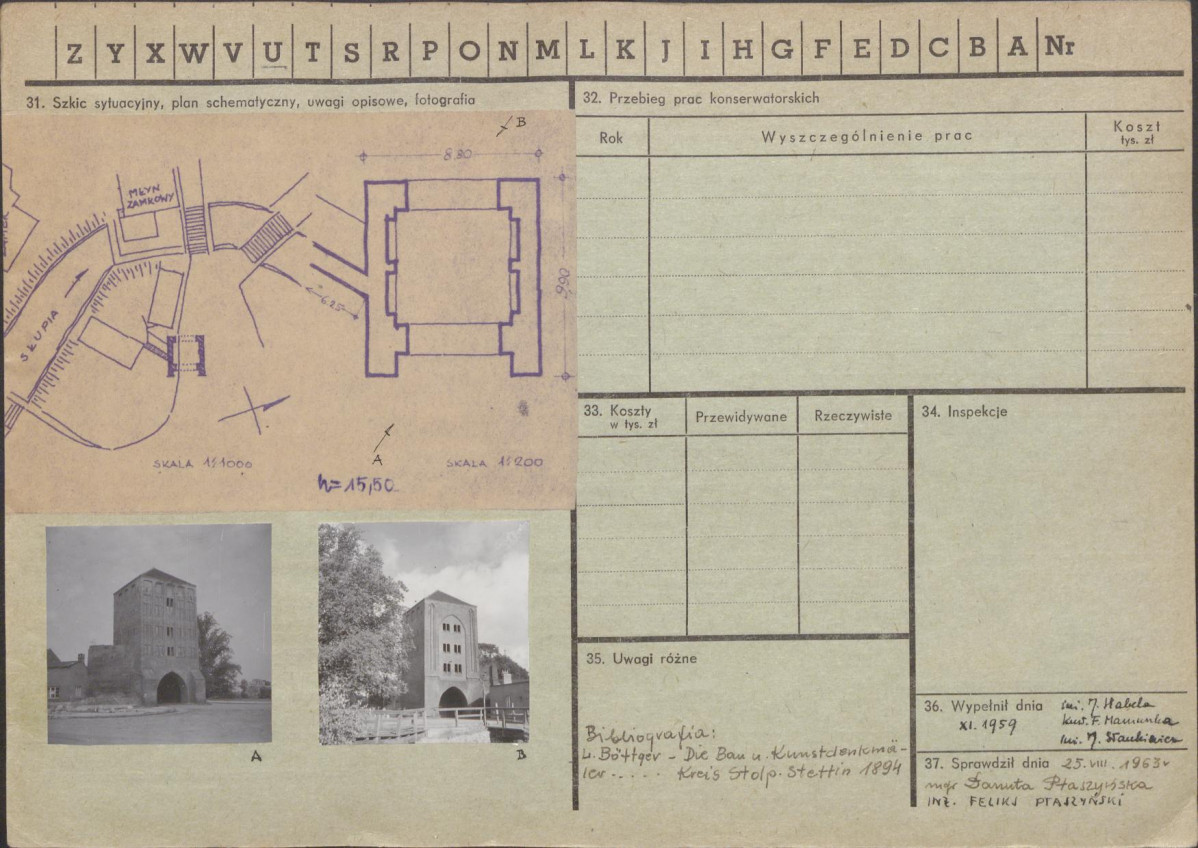 Z Y X W V U T S R P O N M L K J I H G F E D C B A Nr
31. Szkic sytuacyjny, plan schematyczny, uwagi opisowe, fotografia
B
8.30
MŁYN
ZAMKOWY
SŁUPIA
6.25
9,90
A
SKALA 1:1000
SKALA 1:200
h=15,50
A
B
32. Przebieg prac konserwatorskich
Rok
Wyszczególnienie prac
Koszt
tys. zł
33. Koszty
w tys. zł
Przewidywane
Rzeczywiste
34. Inspekcje
35. Uwagi różne
Bibliografia:
L. Böttger – Die Bau u. Kunstdenkmä-
ler ..... Kreis Stolp. Stettin 1894
36. Wypełnił dnia
XI. 1959
inż. J. Habela
F. Mamuszka
inż. J. Stankiewicz
37. Sprawdził dnia 25. VIII. 1963 r
mgr Danuta Ptaszyńska
INŻ. FELIKS PTASZYŃSKI